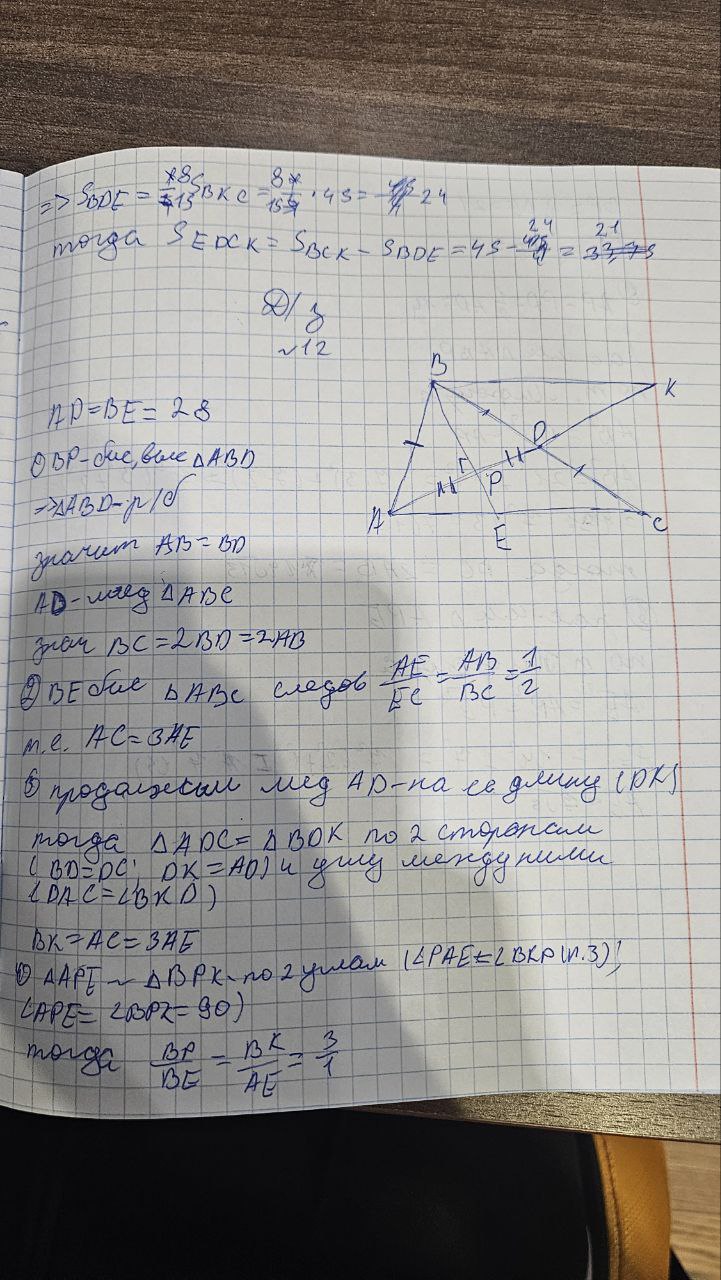 => S BDE = 8/15 S BKC = 8/15 · 45 = 24
тогда S EDCK = S BCK - S BDE = 45 - 24 = 21
Д/з
~12
AD=BE=28
1) BP-бис, выс △ABD
=>△ABD-р/б
значит AB=BD
AD-мед △ABC
знач BC=2BD=2AB
2) BE бис △ABC следов AE/EC = AB/BC = 1/2
т.е. AC=3AE
3) продолжим мед AD-на ее длину (DK)
тогда △ADC=△BDK по 2 сторонам
(BD=DC; DK=AD) и углу между ними
∠DAC=∠BKD)
BK=AC=3AE
4) △APE ~ △BPK-по 2 углам (∠PAE=∠BKP (п.3);
∠APE=∠BPK=90)
тогда BP/BE = BK/AE = 3/1
B
K
D
P
A
E
C